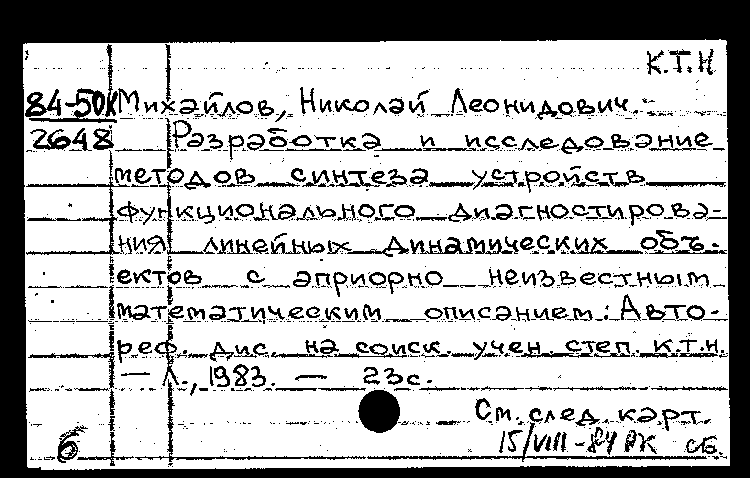 К.Т.Н
84-50К Михайлов, Николай Леонидович.-
2648 Разработка и исследование
методов синтеза устройств
функционального диагностирова-
ния линейных динамических объ-
ектов с априорно неизвестным
математическим описанием: Авто-
реф. дис. на соиск. учен. степ. к.т.н.
— Л., 1983. — 23с.
См. след. карт.
15/VIII-84 РЖ сб.
б